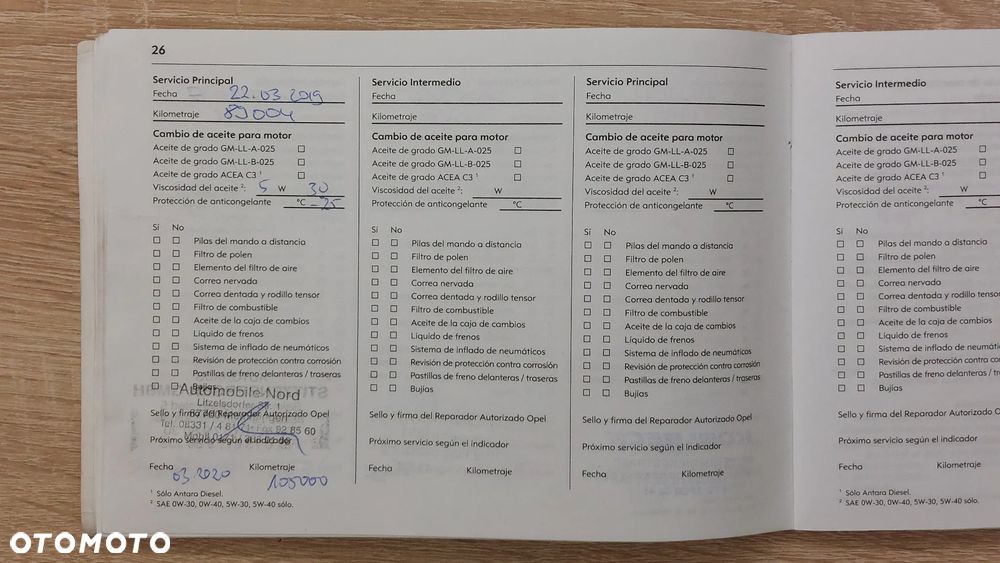 26
Servicio Principal
Fecha 22.03.2019
Kilometraje 89004
Cambio de aceite para motor
Aceite de grado GM-LL-A-025
Aceite de grado GM-LL-B-025
Aceite de grado ACEA C3 ¹
Viscosidad del aceite ²: 5 W 30
Protección de anticongelante °C -25
Sí No
Pilas del mando a distancia
Filtro de polen
Elemento del filtro de aire
Correa nervada
Correa dentada y rodillo tensor
Filtro de combustible
Aceite de la caja de cambios
Líquido de frenos
Sistema de inflado de neumáticos
Revisión de protección contra corrosión
Pastillas de freno delanteras / traseras
Bujías
Automobile Nord
Litzelsdorfer Str. 1
Sello y firma del Reparador Autorizado Opel
Tel. 08331 / 4 6 Fax 92 85 60
Próximo servicio según el indicador
Fecha Kilometraje
03.2020 105000
¹ Sólo Antara Diesel.
² SAE 0W-30, 0W-40, 5W-30, 5W-40 sólo.
Servicio Intermedio
Fecha
Kilometraje
Cambio de aceite para motor
Aceite de grado GM-LL-A-025
Aceite de grado GM-LL-B-025
Aceite de grado ACEA C3 ¹
Viscosidad del aceite ²: W
Protección de anticongelante °C
Sí No
Pilas del mando a distancia
Filtro de polen
Elemento del filtro de aire
Correa nervada
Correa dentada y rodillo tensor
Filtro de combustible
Aceite de la caja de cambios
Líquido de frenos
Sistema de inflado de neumáticos
Revisión de protección contra corrosión
Pastillas de freno delanteras / traseras
Bujías
Sello y firma del Reparador Autorizado Opel
Próximo servicio según el indicador
Fecha Kilometraje
Servicio Principal
Fecha
Kilometraje
Cambio de aceite para motor
Aceite de grado GM-LL-A-025
Aceite de grado GM-LL-B-025
Aceite de grado ACEA C3 ¹
Viscosidad del aceite ²: W
Protección de anticongelante °C
Sí No
Pilas del mando a distancia
Filtro de polen
Elemento del filtro de aire
Correa nervada
Correa dentada y rodillo tensor
Filtro de combustible
Aceite de la caja de cambios
Líquido de frenos
Sistema de inflado de neumáticos
Revisión de protección contra corrosión
Pastillas de freno delanteras / traseras
Bujías
Sello y firma del Reparador Autorizado Opel
Próximo servicio según el indicador
Fecha Kilometraje
Servicio Intermedio
Fecha
Kilometraje
Cambio de aceite para motor
Aceite de grado GM-LL-A-025
Aceite de grado GM-LL-B-025
Aceite de grado ACEA C3 ¹
Viscosidad del aceite ²: W
Protección de anticongelante
Sí No
Pilas del mando a distancia
Filtro de polen
Elemento del filtro de aire
Correa nervada
Correa dentada y rodillo tensor
Filtro de combustible
Aceite de la caja de cambios
Líquido de frenos
Sistema de inflado de neumáticos
Revisión de protección contra
Pastillas de freno delanteras
Bujías
Sello y firma del Reparador Autorizado
Próximo servicio según el indicador
Fecha Kilometraje
¹ Sólo Antara Diesel.
² SAE 0W-30, 0W-40, 5W-30, 5W-40 sólo.
OTOMOTO